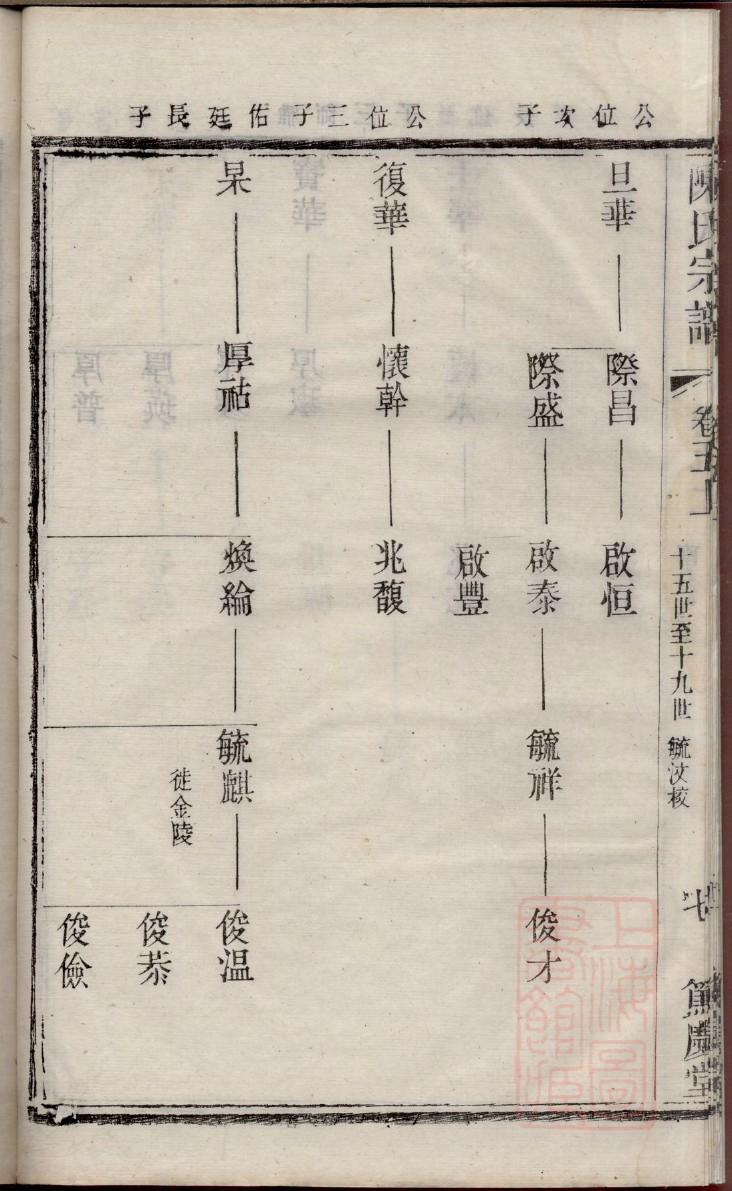 陳氏宗譜
卷五上
十五世至十九世 毓汶核
篤慶堂
公位次子
公位三子
佑廷長子
旦華
際昌
啟恒
際盛
啟泰
毓祥
俊才
啟豐
復華
懷幹
兆馥
杲
厚祜
煥綸
毓麒
徙金陵
俊溫
俊恭
俊儉
上海圖書館藏